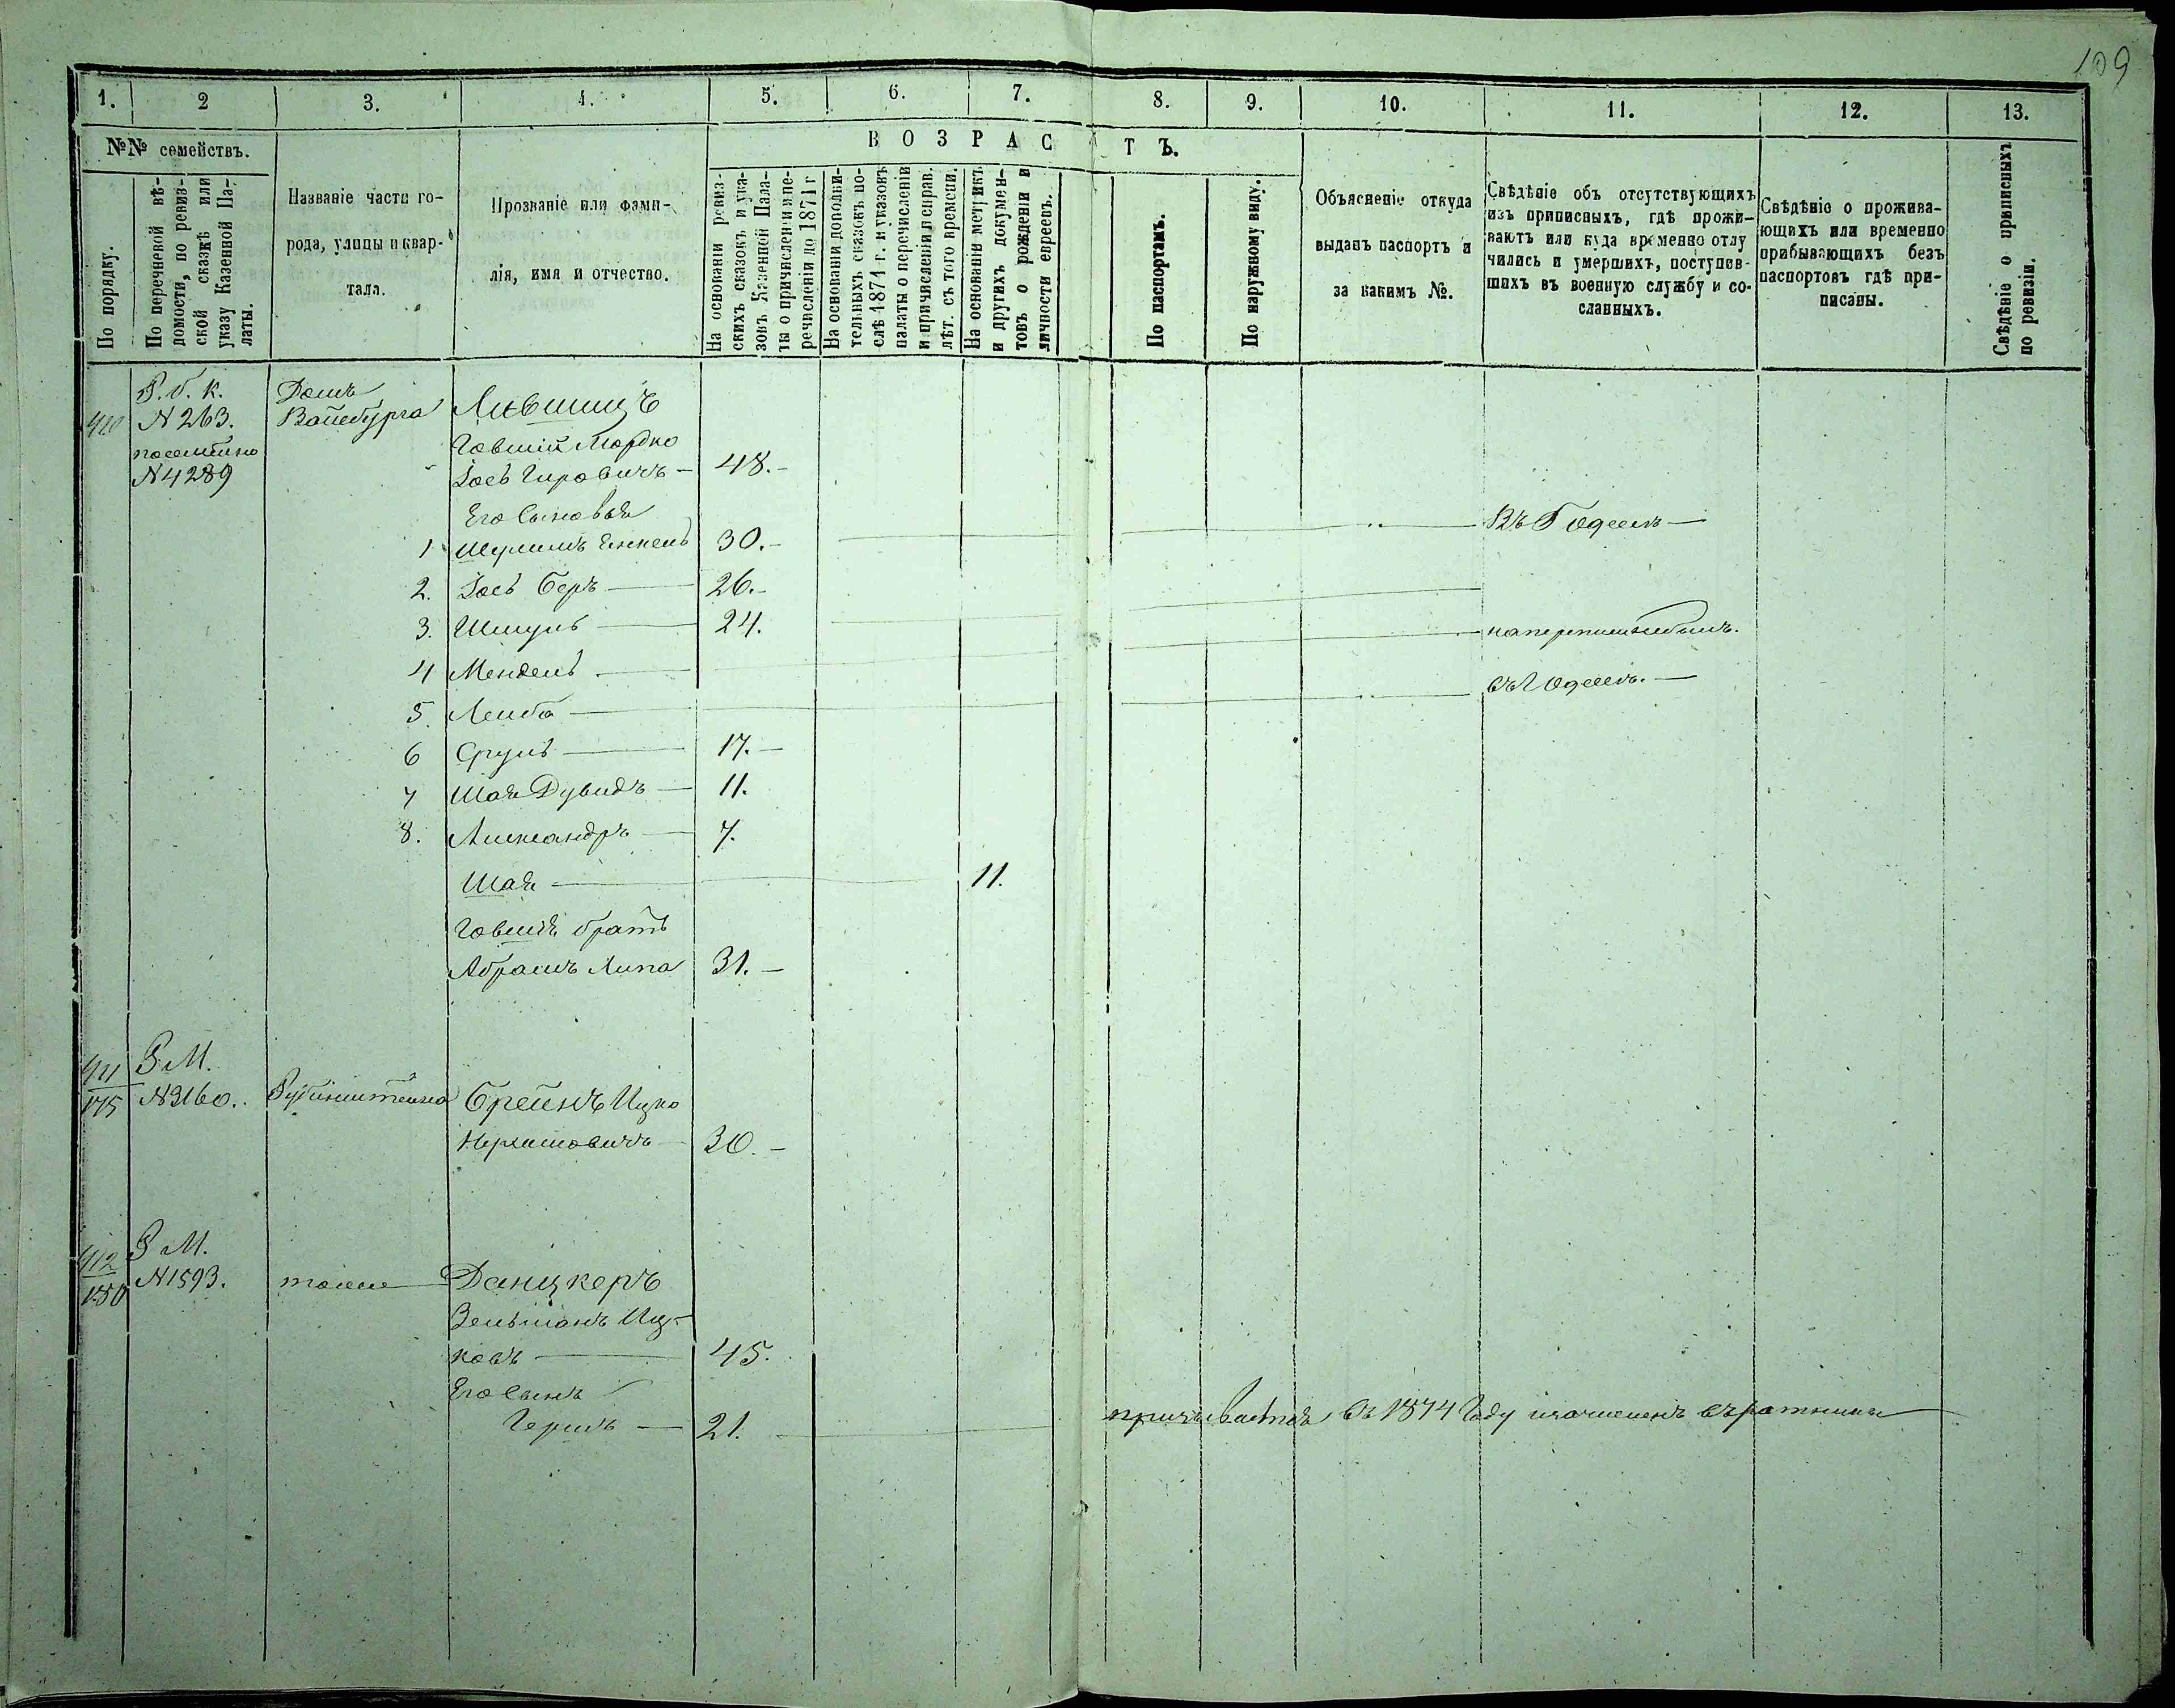 109
1. 2 3. 4. 5. 6. 7. 8. 9. 10. 11. 12. 13.
№№ семействъ.
ВОЗРАСТЪ.
По порядку.
По перечневой вѣ-
домости, по ревиз-
ской сказкѣ или
указу Казенной Па-
латы.
Названіе части го-
рода, улицы и квар-
тала.
Прозваніе или фами-
лія, имя и отчество.
На основаніи ревиз-
скихъ сказокъ и ука-
зовъ Казенной Пала-
ты о причисленіи и пе-
речисленіи до 1871 г
На основаніи дополни-
тельныхъ сказокъ по-
слѣ 1871 г. и указовъ
палаты о перечисленіи
и причисленіи исправ.
лѣт. съ того времени.
На основаніи метрикъ
и другихъ докумен-
товъ о рожденіи и
личности евреевъ.
По паспортамъ.
По наружному виду.
Объясненіе откуда
выданъ паспортъ и
за какимъ №.
Свѣдѣніе объ отсутствующихъ
изъ приписныхъ, гдѣ прожи-
ваютъ или куда временно отлу
чились и умершихъ, поступив-
шихъ въ военную службу и со-
сланныхъ.
Свѣдѣніе о прожива-
ющихъ или временно
прибывающихъ безъ
паспортовъ гдѣ при-
писаны.
Свѣдѣніе о приписныхъ
по ревизіи.
410 Р. б. к. Домъ
N 263. Вайсбурга Лившицъ
посемейно Говшій Мордко
N 4289 Іось Гировичъ — 48. -
Его Сыновья
1 Шулимъ Енкель 30. - Въ Г Одессѣ —
2. Іось Беръ — 26. -
3. Шмуль — 24.
4 Мендель —
5. Лейба — въ Г Одессѣ. —
6 Сруль — 17. —
7 Шая Дувидъ — 11.
8. Александръ — 7.
Шая — 11.
Говшія братъ
Абрамъ Липа 31. —
411 Р. М.
175 N 3160. Рубинштейна Брейнъ Ицко
30. -
412 Р М.
180 N 1593. тоже Данцкеръ
Зельманъ Иц-
ковъ — 45.
Его Сынъ
Гершъ — 21. — въ 1874 Году зачисленъ въ ратники